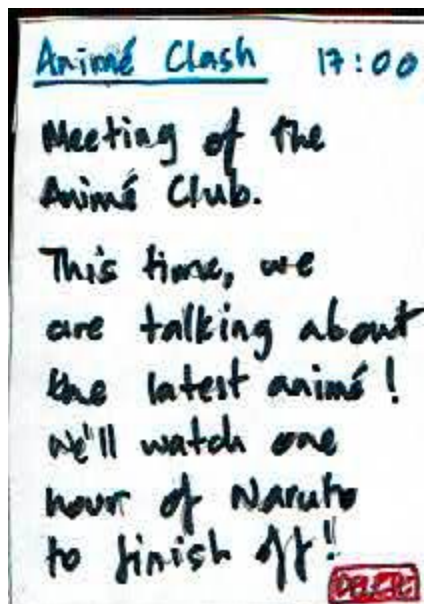 Animé Clash 17:00
Meeting of the
Animé Club.
This time, we
are talking about
the latest animé!
We'll watch one
hour of Naruto
to finish off!!